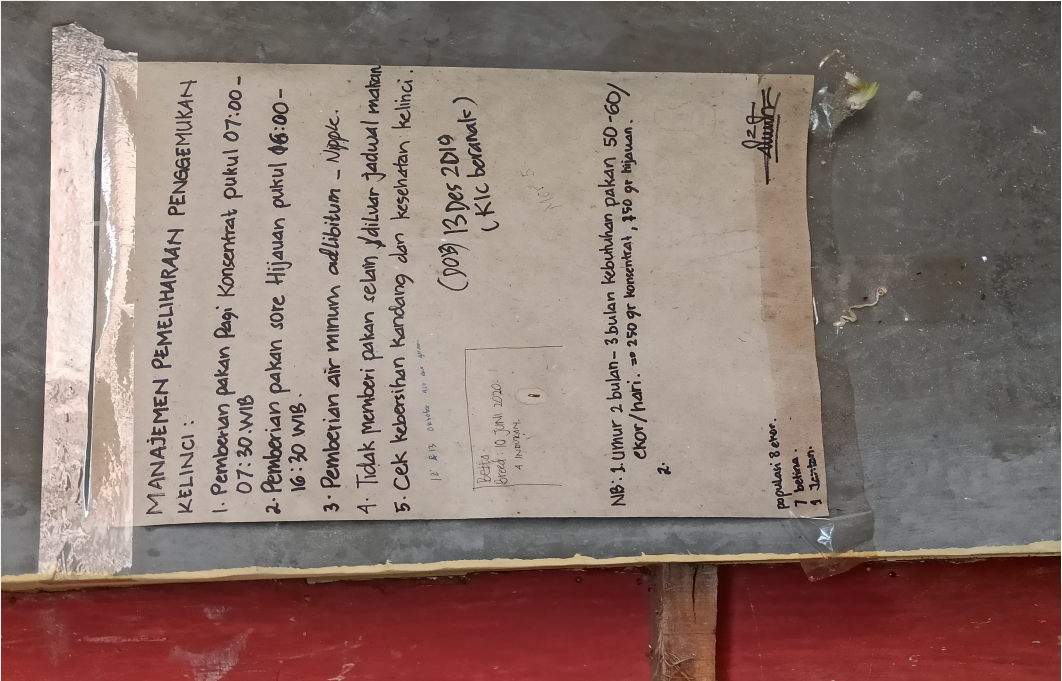 MANAJEMEN PEMELIHARAAN PENGGEMUKAN
KELINCI :
1. Pemberian pakan Pagi Konsentrat pukul 07:00 -
07:30 WIB
2. Pemberian pakan sore Hijauan pukul 16:00 -
16:30 WIB.
3. Pemberian air minum adlibitum - Nipple.
4. Tidak memberi pakan selain /diluar jadual makan
5. Cek kebersihan kandang dan kesehatan kelinci.
(DOB 13 Des 2019
(Klc beranak)
Betta
Breed : 10 JUNI 2020
4 INDUKAN
NB: 1. Umur 2 bulan - 3 bulan kebutuhan pakan 50-60/
ekor/hari. => 250 gr konsentrat, 150 gr hijauan.
2.
populasi 8 ekor.
7 betina.
1 Jantan.